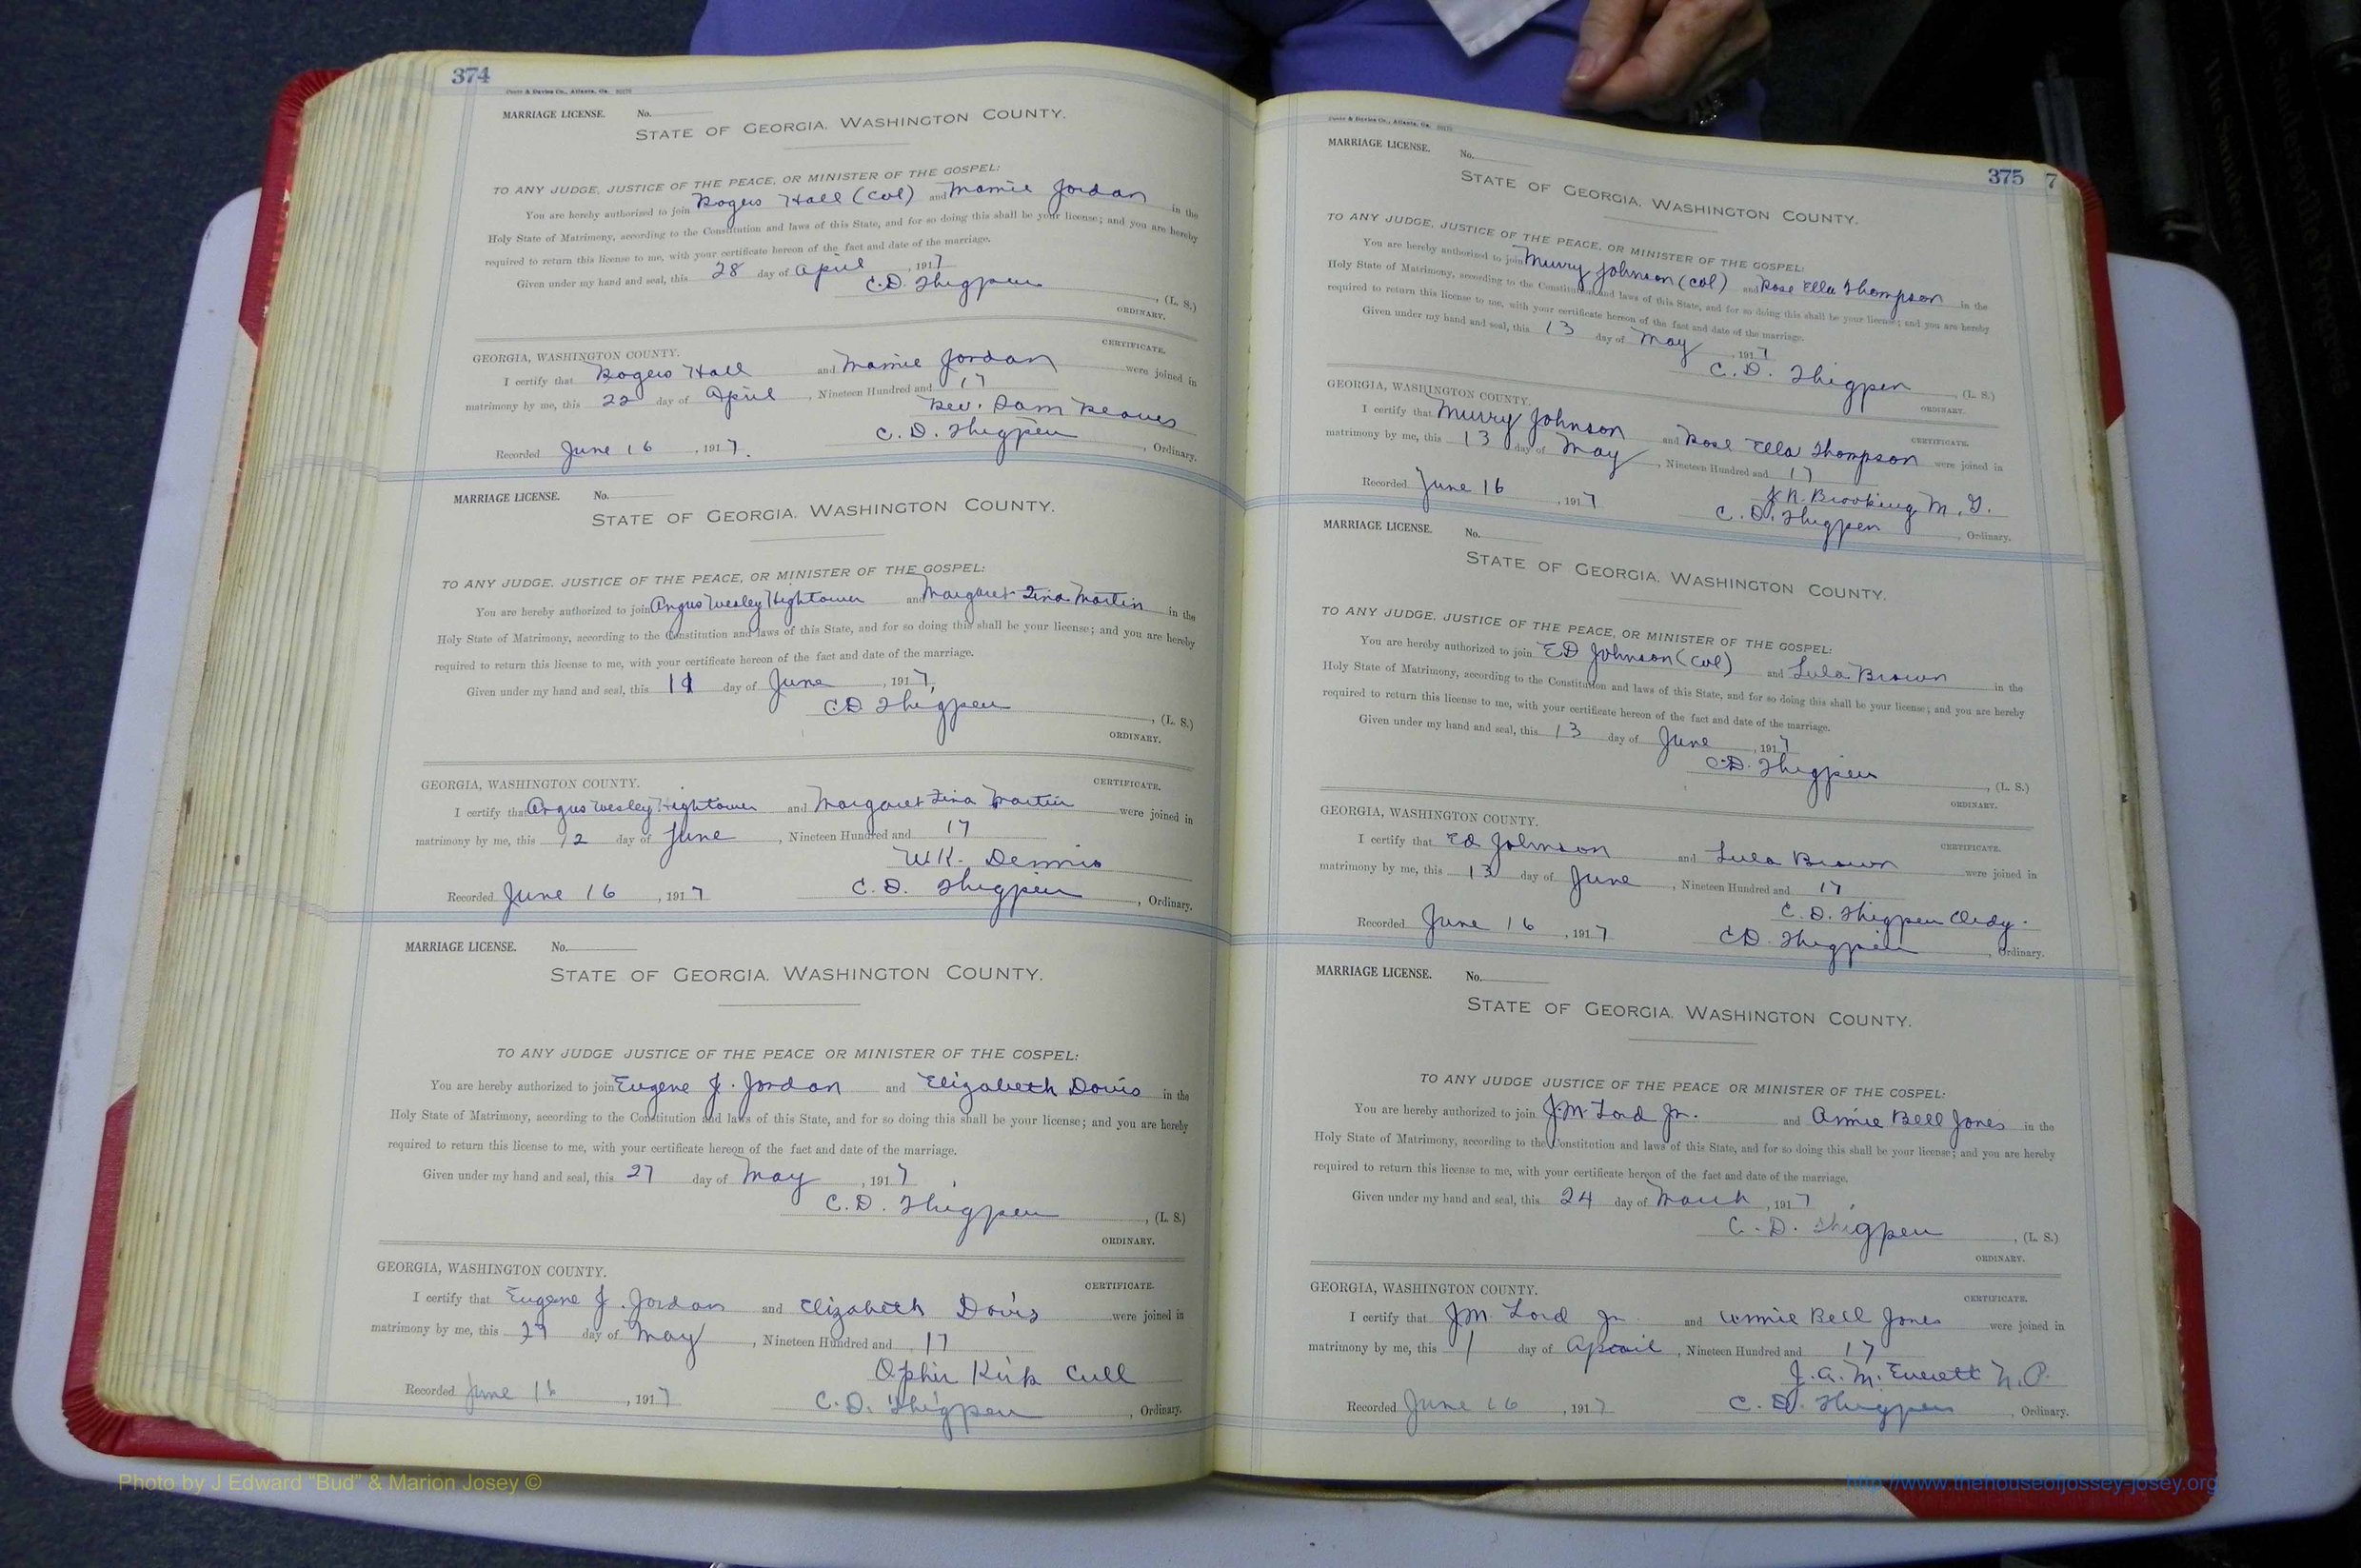 374
MARRIAGE LICENSE. No.
STATE OF GEORGIA. WASHINGTON COUNTY.
TO ANY JUDGE, JUSTICE OF THE PEACE, OR MINISTER OF THE GOSPEL:
You are hereby authorized to join Rogers Hall (Col) and Mamie Jordan in the
Holy State of Matrimony, according to the Constitution and laws of this State, and for so doing this shall be your license; and you are hereby
required to return this license to me, with your certificate hereon of the fact and date of the marriage.
Given under my hand and seal, this 28 day of April, 1917
C.D. Thigpen, (L. S.)
ORDINARY.
GEORGIA, WASHINGTON COUNTY. CERTIFICATE.
I certify that Rogers Hall and Mamie Jordan were joined in
matrimony by me, this 22 day of April, Nineteen Hundred and 17
Rev. Sam Reaves
Recorded June 16, 1917. C. D. Thigpen, Ordinary.
MARRIAGE LICENSE. No.
STATE OF GEORGIA. WASHINGTON COUNTY.
TO ANY JUDGE, JUSTICE OF THE PEACE, OR MINISTER OF THE GOSPEL:
You are hereby authorized to join Angus Wesley Hightower and Margaret Martin in the
Holy State of Matrimony, according to the Constitution and laws of this State, and for so doing this shall be your license; and you are hereby
required to return this license to me, with your certificate hereon of the fact and date of the marriage.
Given under my hand and seal, this 11 day of June, 1917,
C.D. Thigpen, (L. S.)
ORDINARY.
GEORGIA, WASHINGTON COUNTY. CERTIFICATE.
I certify that Angus Wesley Hightower and Margaret Martin were joined in
matrimony by me, this 12 day of June, Nineteen Hundred and 17
W.K. Dennis
Recorded June 16, 1917 C. D. Thigpen, Ordinary.
MARRIAGE LICENSE. No.
STATE OF GEORGIA. WASHINGTON COUNTY.
TO ANY JUDGE JUSTICE OF THE PEACE OR MINISTER OF THE GOSPEL:
You are hereby authorized to join Eugene J. Jordan and Elizabeth Davis in the
Holy State of Matrimony, according to the Constitution and laws of this State, and for so doing this shall be your license; and you are hereby
required to return this license to me, with your certificate hereon of the fact and date of the marriage.
Given under my hand and seal, this 27 day of May, 1917
C. D. Thigpen, (L. S.)
ORDINARY.
GEORGIA, WASHINGTON COUNTY. CERTIFICATE.
I certify that Eugene J. Jordan and Elizabeth Davis were joined in
matrimony by me, this 27 day of May, Nineteen Hundred and 17
Kirk Cull
Recorded June 16, 1917 C. D. Thigpen, Ordinary.
375 7
MARRIAGE LICENSE. No.
STATE OF GEORGIA. WASHINGTON COUNTY.
TO ANY JUDGE, JUSTICE OF THE PEACE, OR MINISTER OF THE GOSPEL:
You are hereby authorized to join Murry Johnson (Col) and Rose Ella Thompson in the
Holy State of Matrimony, according to the Constitution and laws of this State, and for so doing this shall be your license; and you are hereby
required to return this license to me, with your certificate hereon of the fact and date of the marriage.
Given under my hand and seal, this 13 day of May, 1917
C. D. Thigpen, (L. S.)
ORDINARY.
GEORGIA, WASHINGTON COUNTY. CERTIFICATE.
I certify that Murry Johnson and Rose Ella Thompson were joined in
matrimony by me, this 13 day of May, Nineteen Hundred and 17
Brooking M. G.
Recorded June 16, 1917 C. D. Thigpen, Ordinary.
MARRIAGE LICENSE. No.
STATE OF GEORGIA. WASHINGTON COUNTY.
TO ANY JUDGE, JUSTICE OF THE PEACE, OR MINISTER OF THE GOSPEL:
You are hereby authorized to join ED Johnson (Col) and Lula Brown in the
Holy State of Matrimony, according to the Constitution and laws of this State, and for so doing this shall be your license; and you are hereby
required to return this license to me, with your certificate hereon of the fact and date of the marriage.
Given under my hand and seal, this 13 day of June, 1917
C.D. Thigpen, (L. S.)
ORDINARY.
GEORGIA, WASHINGTON COUNTY. CERTIFICATE.
I certify that Ed Johnson and Lula Brown were joined in
matrimony by me, this 13 day of June, Nineteen Hundred and 17
C. D. Thigpen Ordy.
Recorded June 16, 1917 C.D. Thigpen, Ordinary.
MARRIAGE LICENSE. No.
STATE OF GEORGIA. WASHINGTON COUNTY.
TO ANY JUDGE JUSTICE OF THE PEACE OR MINISTER OF THE GOSPEL:
You are hereby authorized to join J.M. Lord Jr. and Annie Bell Jones in the
Holy State of Matrimony, according to the Constitution and laws of this State, and for so doing this shall be your license; and you are hereby
required to return this license to me, with your certificate hereon of the fact and date of the marriage.
Given under my hand and seal, this 24 day of March, 1917
C. D. Thigpen, (L. S.)
ORDINARY.
GEORGIA, WASHINGTON COUNTY. CERTIFICATE.
I certify that J.M. Lord Jr. and Annie Bell Jones were joined in
matrimony by me, this 1 day of April, Nineteen Hundred and 17
J. A. M. Everett N. P.
Recorded June 16, 1917 C. D. Thigpen, Ordinary.
Photo by J Edward "Bud" & Marion Josey ©
http://www.thehouseofjossey-josey.org